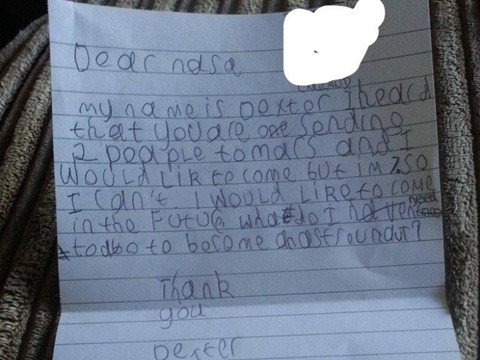 Dear nasa
my name is Dexter I heard
that you are one sending
2 peaple to mars and I
would lik to come but im 7. so
I can't I would like to come
in the future what do I need
to do to become an astrounaut?
Thank
you
Dexter